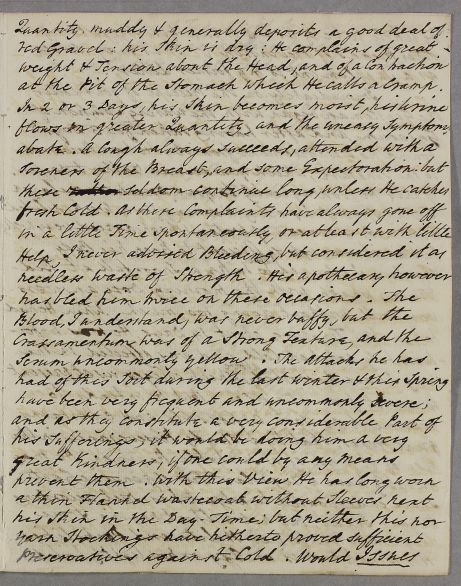 Quantity muddy & generally deposits a good deal of
red Gravel: his Skin is dry: He complains of great
weight & Tension about the Head, and of a Contraction
at the Pit of the Stomach which He calls a Cramp.
In 2 or 3 Days, his Skin becomes moist, his Urine
flows in greater Quantity and the uneasy Symptoms
abate. A Cough always succeeds, attended with a
Soreness of the Breast, and some Expectoration: but
these seldom continue long, unless He catches
fresh Cold. As these Complaints have always gone off
in a little Time spontaneously or at least with little
Help, I never advised Bleeding, but considered it as
needless waste of Strength. His apothecary however
has bled him twice on these occasions. The
Blood, I understand, was never buffy, but the
Crassamentum was of a Strong Texture, and the
Serum uncommonly yellow. The attacks he has
had of this Sort during the last winter & this Spring
have been very frequent and uncommonly severe;
and as they constitute a very considerable Part of
his Sufferings, it would be doing him a very
great Kindness, if one could by any means
prevent them. With this View He has long worn
a thin Flannel wastecoat without Sleeves next
his Skin in the Day-Time; but neither this nor
yarn Stockings have hitherto proved sufficient
Preservatives against Cold. Would Issues